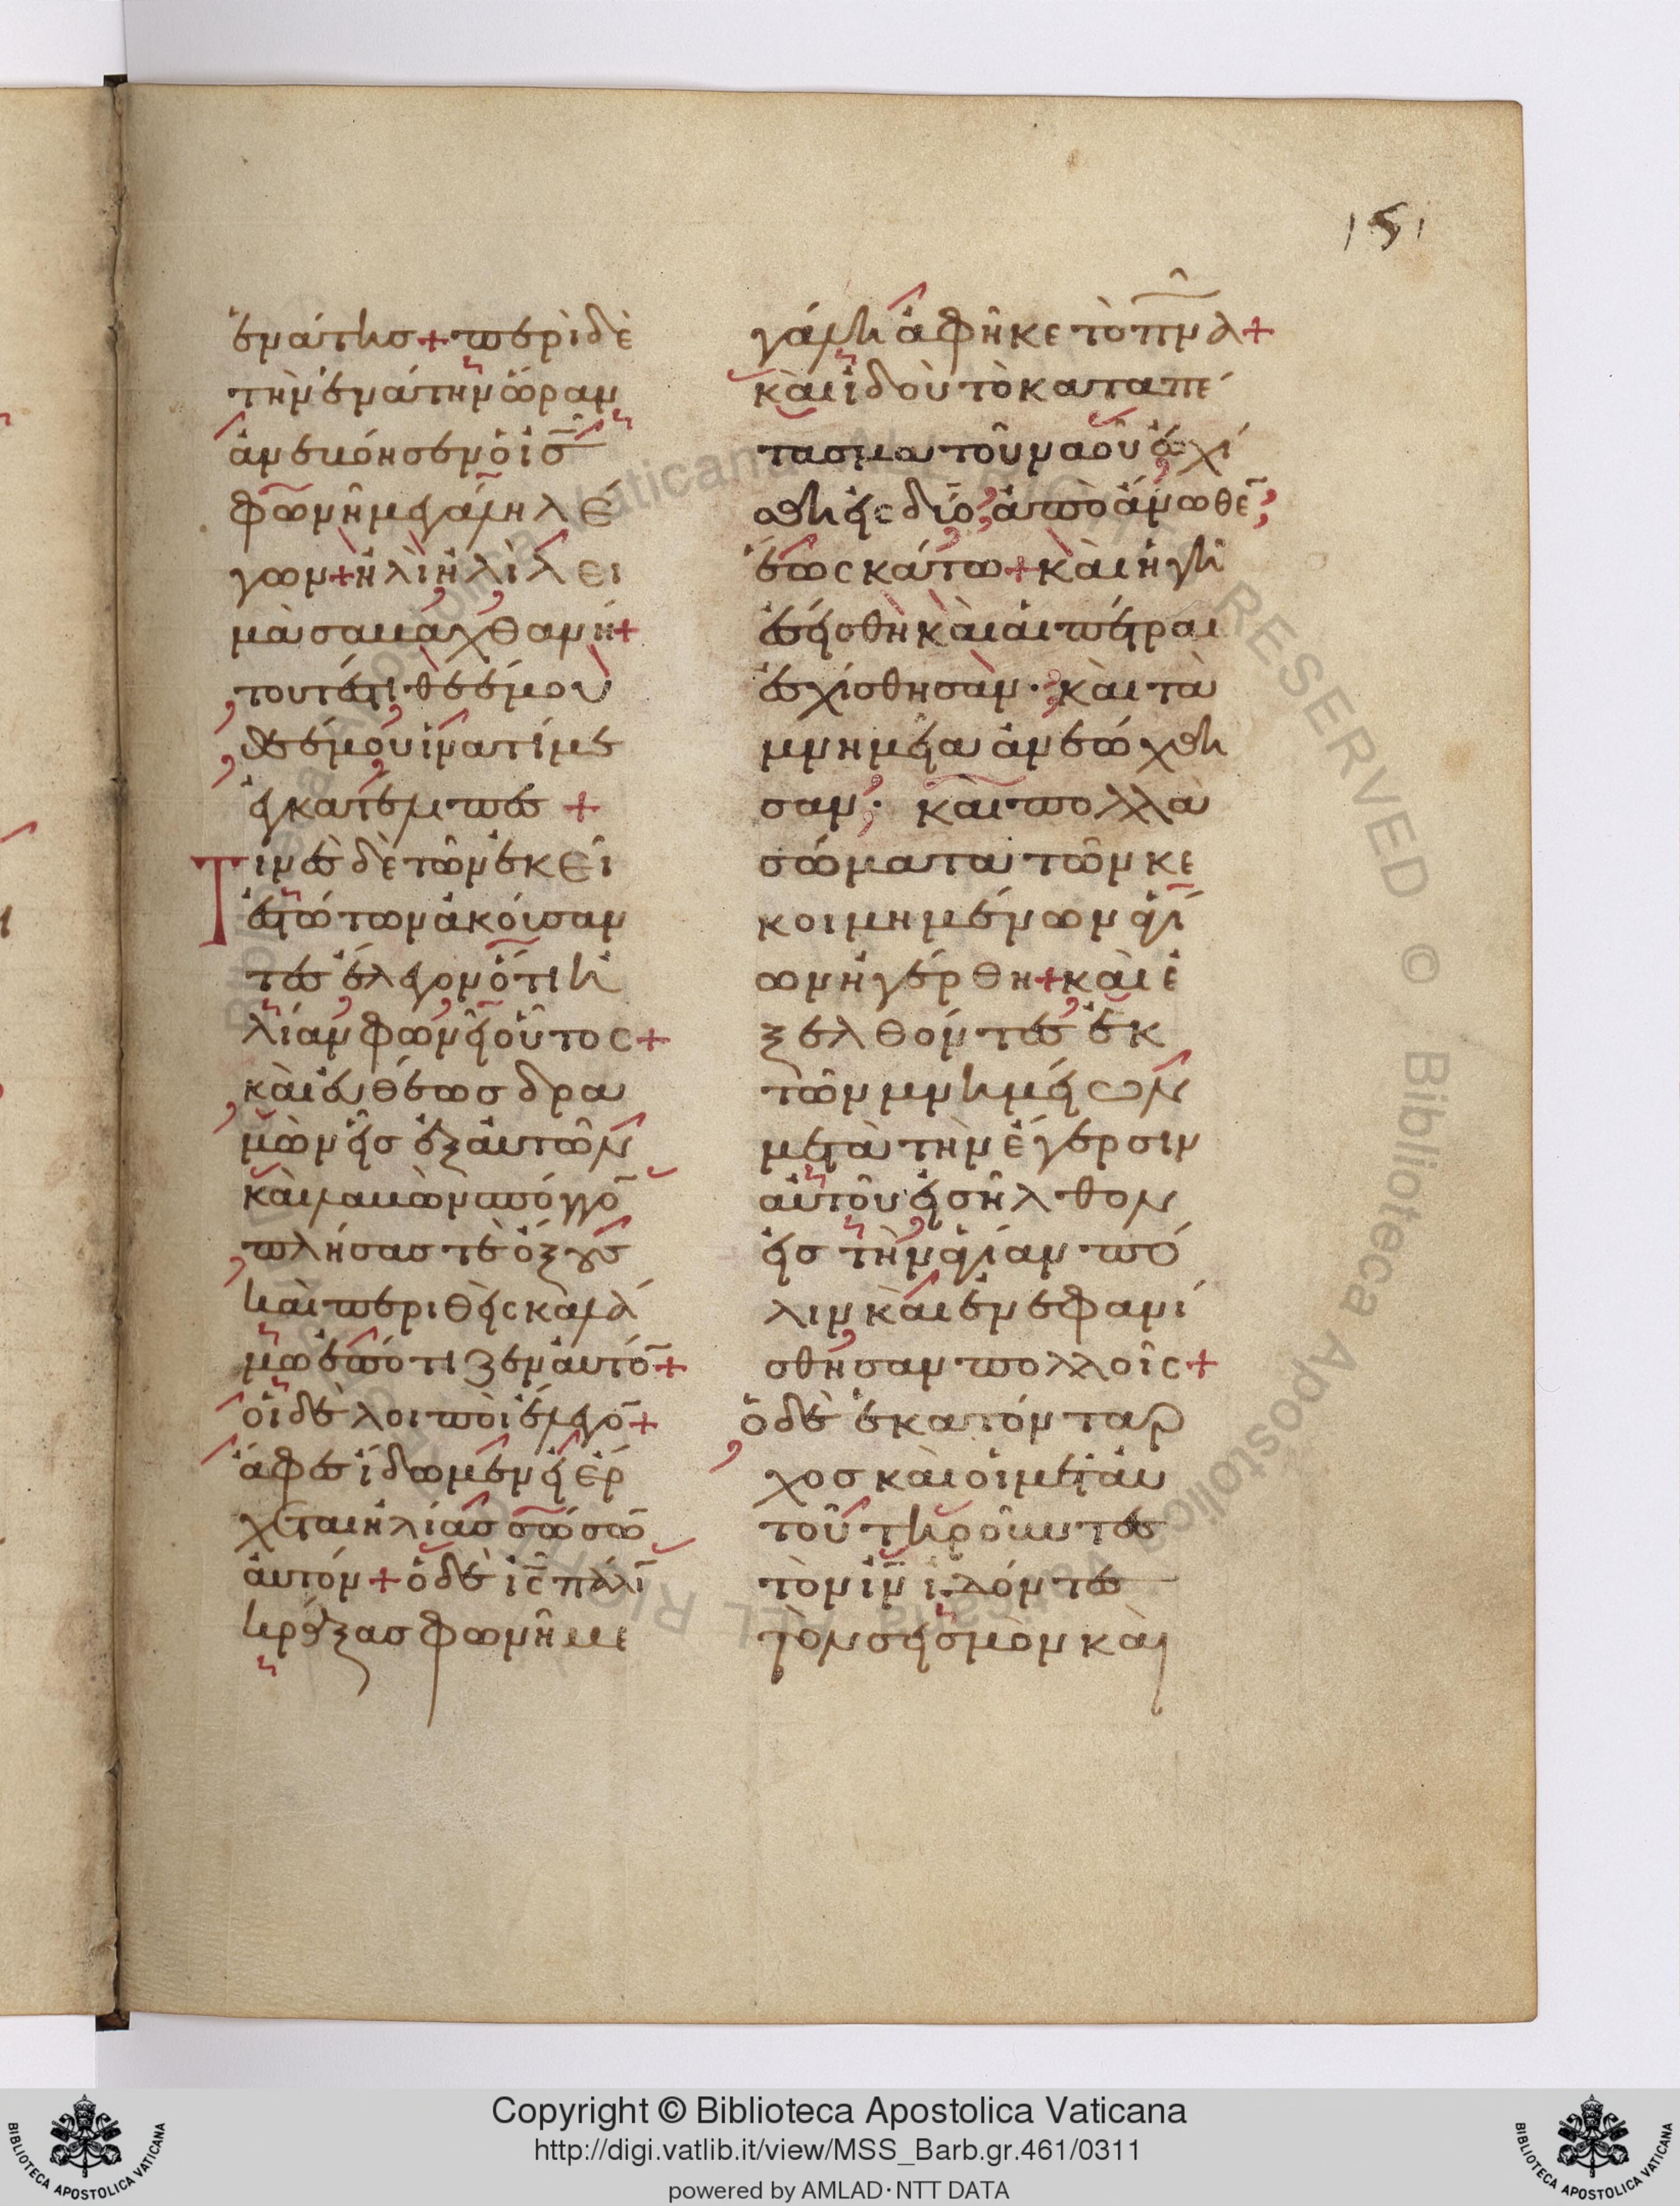 151
ἐνάτησ + περὶ δὲ
τὴν ἐνάτην ὥραν
ἀνεβόησεν ὁ ι̅σ̅
φωνῆ μεγάλη λέ
γων + ἠλὶ ἠλὶ λει
μὰ σαβαχθανή +
τουτέστι θεέ μου
θεέ μου ἱνατί με
ἐγκατέλιπεσ +
Τινὲσ δὲ τῶν ἐκεῖ
ἑστώτων ἀκούσαν
τεσ ἔλεγον ὅτι ἠ
λίαν φωνεῖ οὗτος +
καὶ εὐθέωσ δρα
μὼν εἷσ ἐξ αὐτῶν
καὶ λαβὼν σπόγγο̅
πλήσασ τε ὄξουσ
καὶ περιθεὶς καλά
μω ἐπότιζεν αὐτό̅ +
οἱ δὲ λοιποὶ ἔλεγο̅ +
ἄφεσ ἴδωμεν εἰ ἔρ
χεται ἠλίασ σώσω̅
αὐτόν + ὁ δὲ ι̅ς̅ πάλι̅
κράξασ φωνῆ με
γάλη ἀφῆκε τὸ π̅ν̅α̅ +
καὶ ἰδοὺ τὸ καταπέ
τασμα τοῦ ναοῦ ἐσχί
σθη εἰς δύο, ἀπὸ ἄνωθε̅,
ἕως κάτω + καὶ ἡ γῆ
ἐσείσθη καὶ αἱ πέτραι
ἐσχίσθησαν · καὶ τὰ
μνημεῖα ἀνεώχθη
σαν · καὶ πολλὰ
σώματα τῶν κε
κοιμημένων ἁγί
ων ἠγέρθη + καὶ ἐ
ξελθόντεσ ἐκ
τῶν μνημείων
μετὰ τὴν ἔγερσιν
αὐτοῦ εἰσῆλθον
εἰσ τὴν ἁγίαν πό
λιν καὶ ἐνεφανί
σθησαν πολλοῖς +
ὁ δὲ ἑκατόνταρ
χοσ καὶ οἱ μετ' αὐ
τοῦ τηροῦντεσ
τὸν ι̅ν̅ ἰδόντεσ
τὸν σεισμὸν καὶ
Copyright © Biblioteca Apostolica Vaticana
http://digi.vatlib.it/view/MSS_Barb.gr.461/0311
powered by AMLAD·NTT DATA